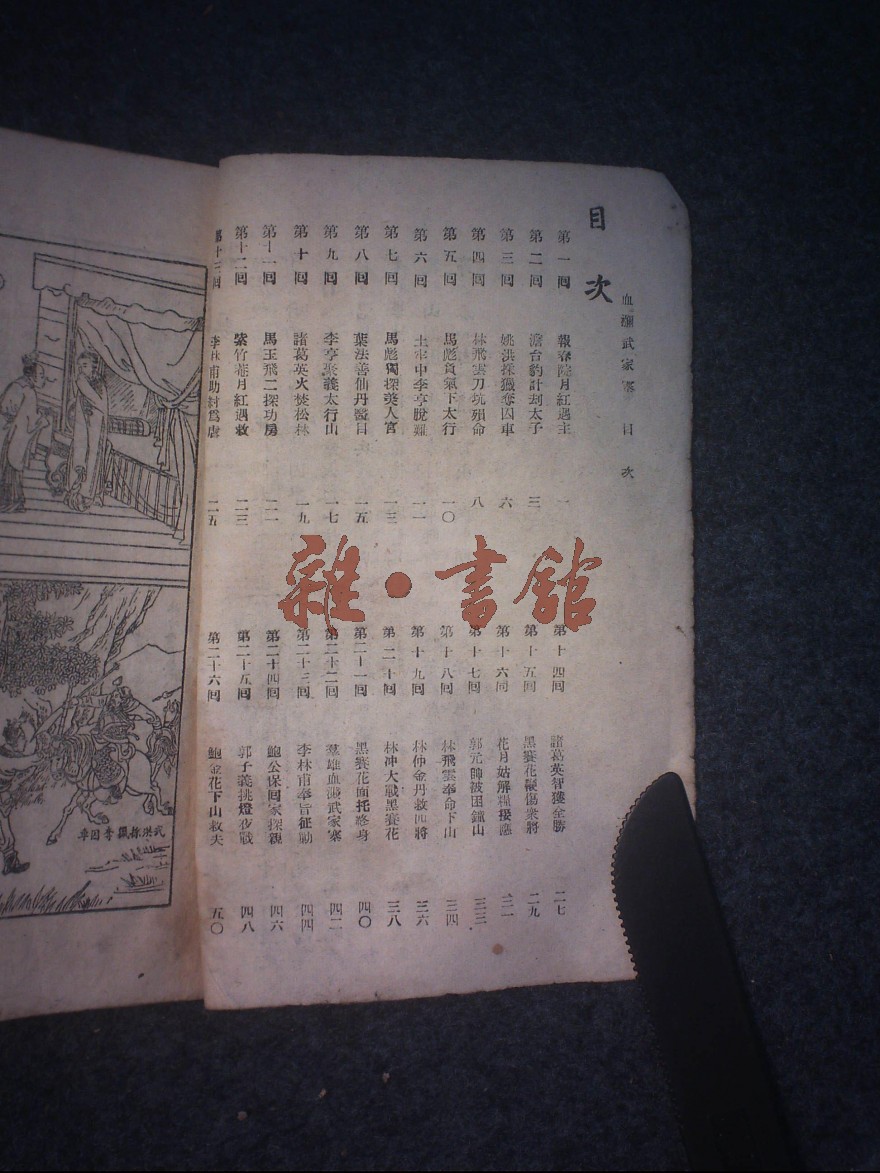 血濺武家寨 目次
目次
第一回 報春院月紅遇主 一
第二回 澹台豹計刦太子 三
第三回 姚洪採獵奪囚車 六
第四回 林飛雲刀坑殞命 八
第五回 馬彪負氣下太行 一〇
第六回 土牢中李亨脫難 一一
第七回 馬彪獨探美人宮 一三
第八回 葉法善仙丹醫目 一五
第九回 李亨聚義太行山 一七
第十回 諸葛英火焚松林 一九
第十一回 馬玉飛二探功房 二一
第十二回 紫竹菴月紅遇救 二三
第十三回 李林甫助紂爲虐 二五
第十四回 諸葛英智獲全勝 二七
第十五回 黑賽花鞭傷衆將 二九
第十六回 花月姑解糧接應 三一
第十七回 郭元帥被困鐘山 三三
第十八回 林飛雲奉命下山 三四
第十九回 林仲金丹救四將 三六
第二十回 林冲大戰黑賽花 三八
第二十一回 黑賽花面托終身 四〇
第二十二回 羣雄血濺武家寨 四二
第二十三回 李林甫奉旨征勦 四四
第二十四回 鮑公保回家探親 四六
第二十五回 郭子義挑燈夜戰 四八
第二十六回 鮑金花下山救夫 五〇
雜·書館